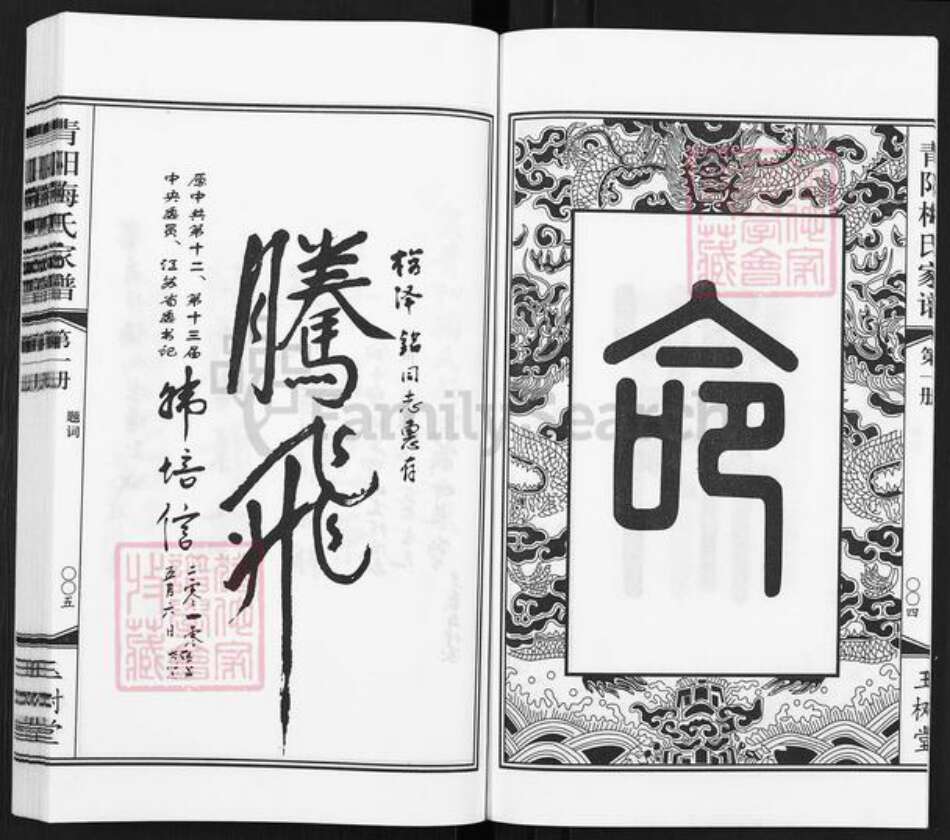 命
青阳梅氏家谱
第一册
〇〇四
玉树堂
梅泽铭同志惠存
腾飞
原中共第十二、第十三届
中央委员、江苏省委书记
韩培信
二零一零年
五月六日
青阳梅氏家谱
第一册
题词
〇〇五
玉树堂
FamilySearch